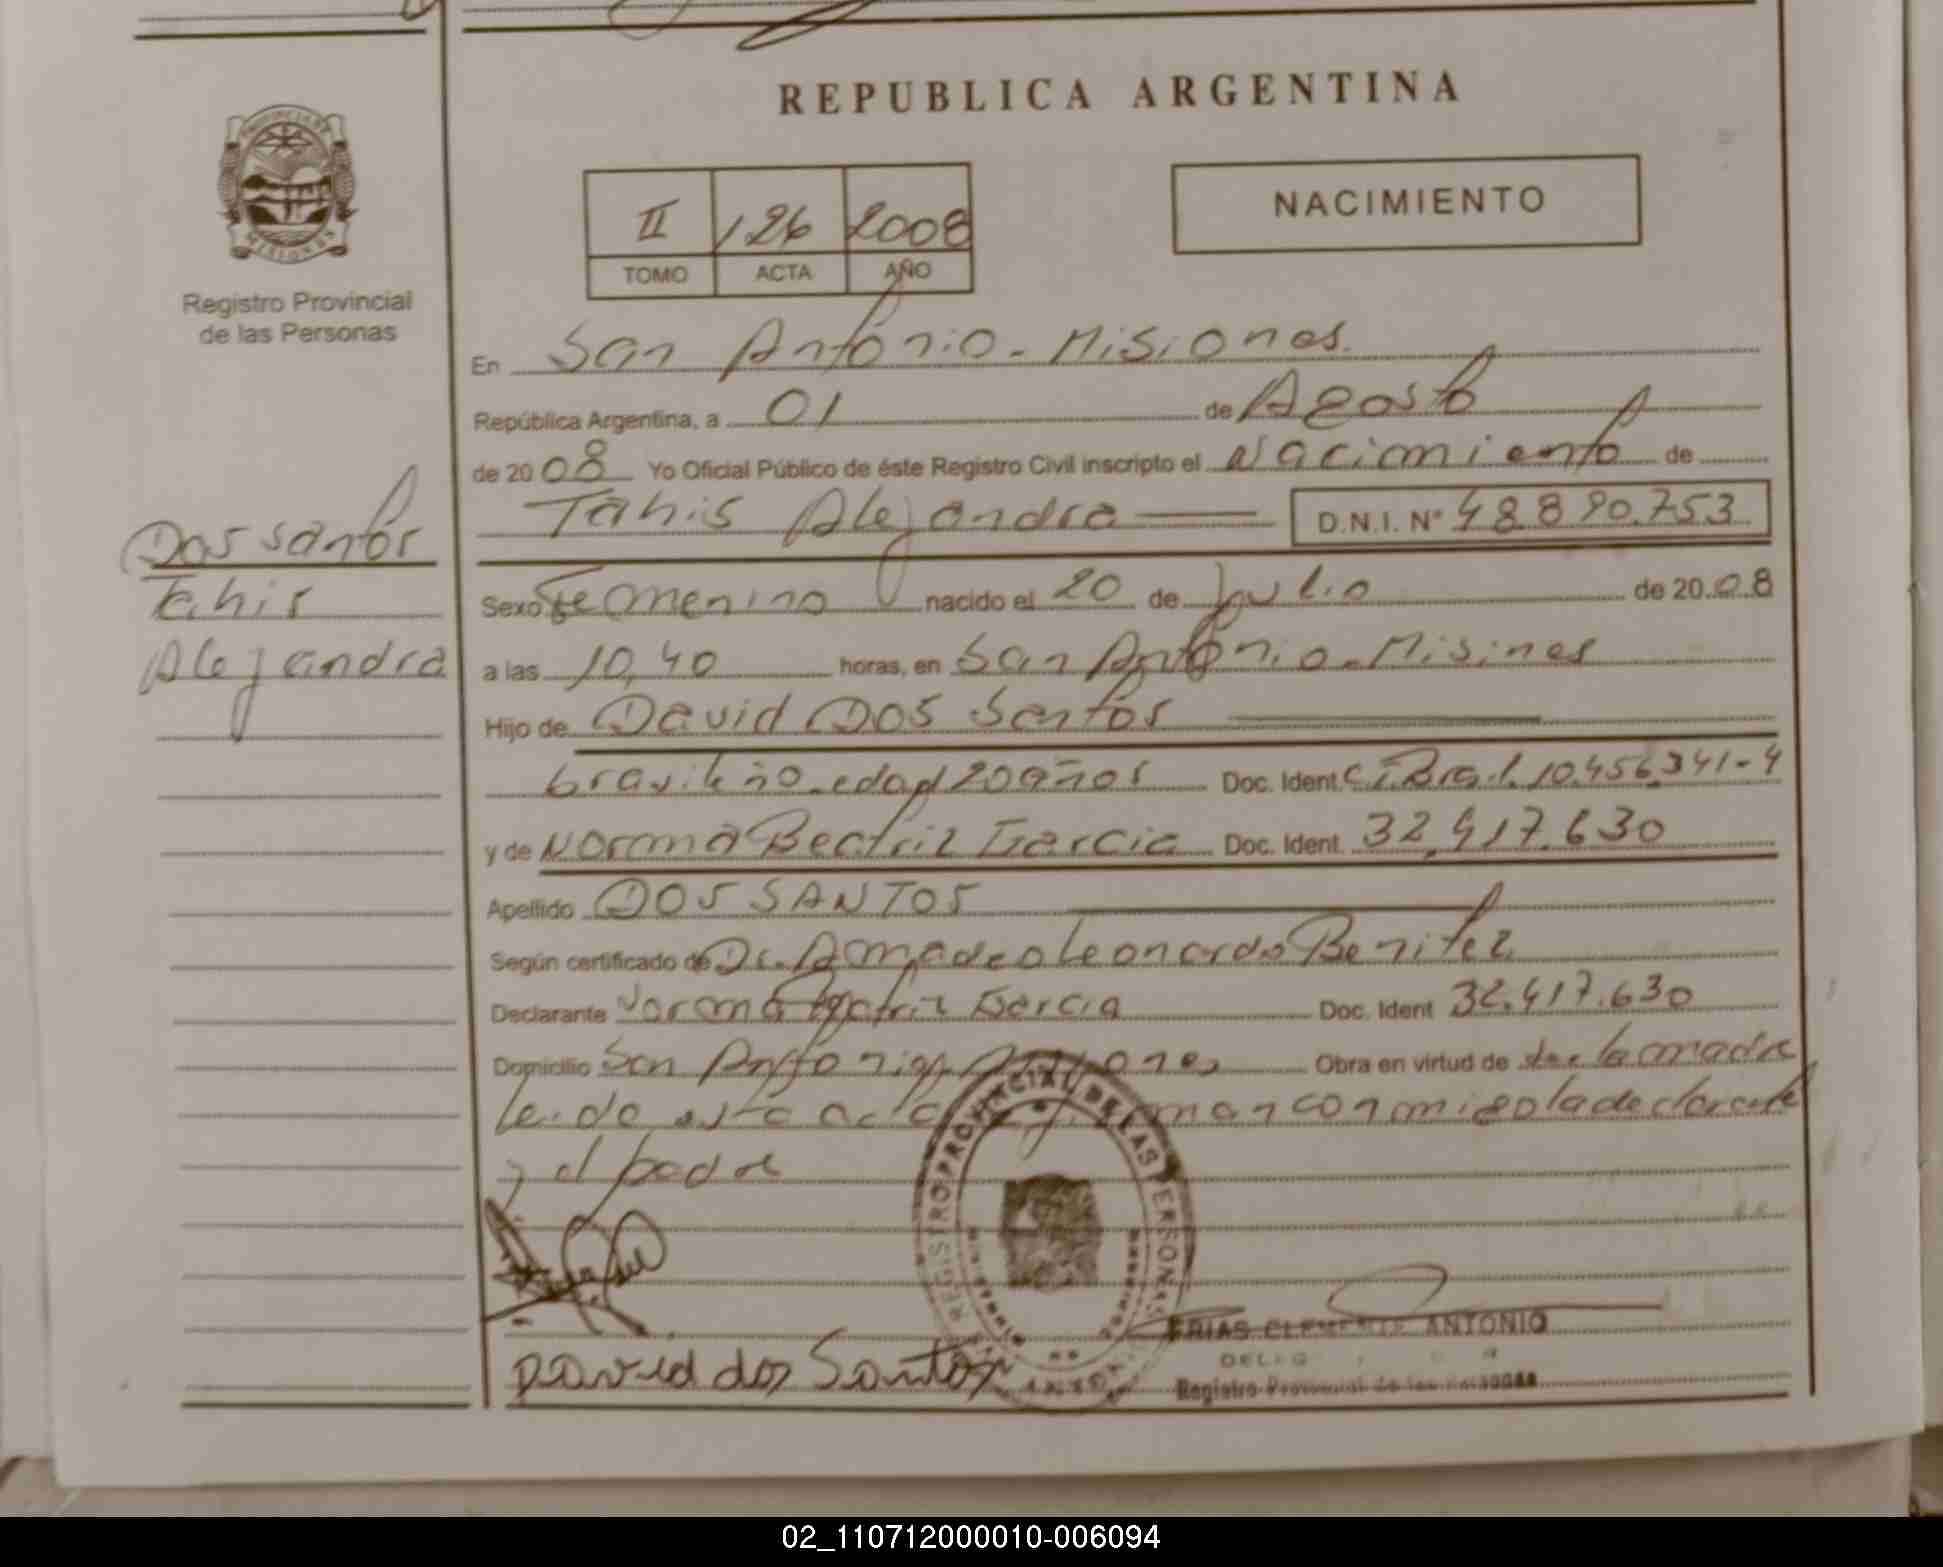 REPUBLICA ARGENTINA
PROVINCIA DE
MISIONES
Registro Provincial
de las Personas
II 126 2008
TOMO ACTA AÑO
NACIMIENTO
En San Antonio - Misiones.
República Argentina, a 01 de Agosto
de 2008 Yo Oficial Público de éste Registro Civil inscripto el Nacimiento de
Tahis Alejandra D.N.I. N° 48.890.753
Dos santos
Tahis
Alejandra
Sexo Femenino nacido el 20 de Julio de 20.08
a las 10,40 horas, en San Antonio - Misines
Hijo de David Dos Santos
brasileño - edad 20 años Doc. Ident. C.I. Brasil. 10.456.341-4
y de Norma Beatriz Garcia Doc. Ident. 32.417.630
Apellido DOS SANTOS
Según certificado de Dr. Amadeo Leonardo Benitez
Declarante Norma Beatriz Garcia Doc. Ident 32.417.630
Domicilio San Antonio Misiones Obra en virtud de ser la madre
leido esta acta firman conmigo la declarante
y el padre
REGISTRO PROVINCIAL DE LAS PERSONAS
david dos Santos
FRIAS CLEMENTE ANTONIO
Registro Provincial de las Personas
02_110712000010-006094